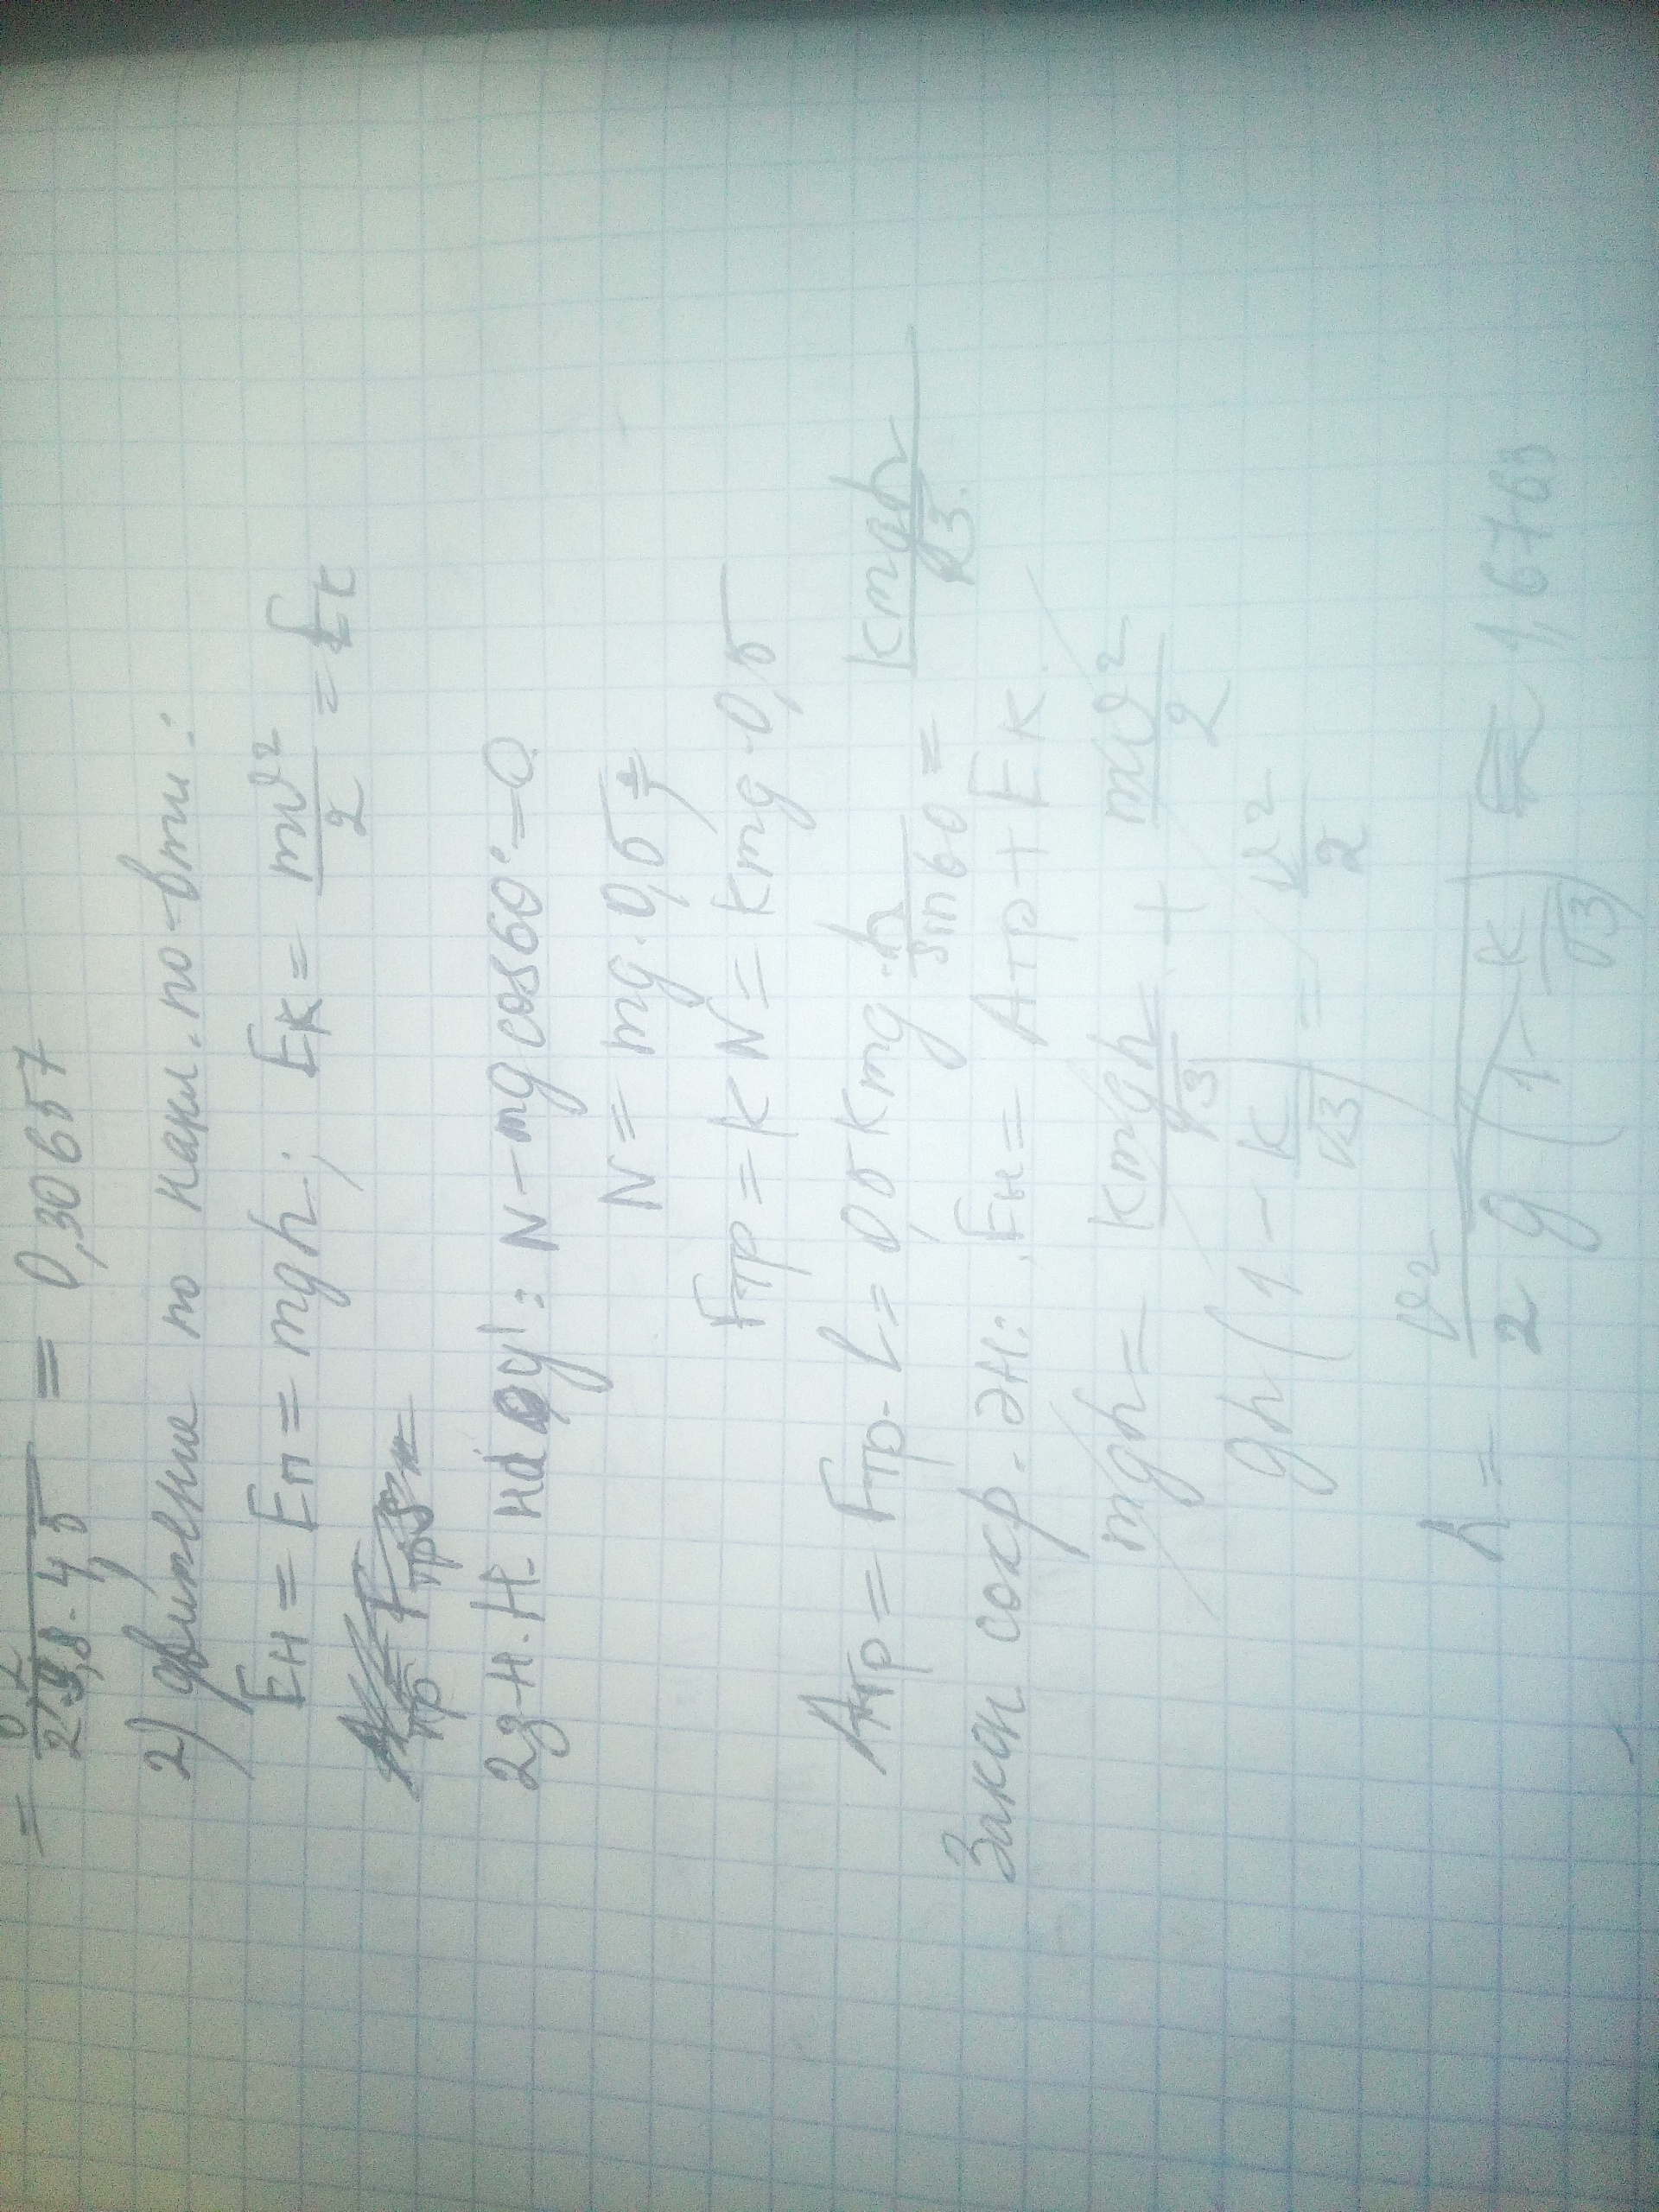 = / 2·9,8·4,5 = 0,30657
2) движение по накл. по-вти:
Eн = Eп = mgh; Eк = mv²/2 = Eк
2з-н. Н. на оу: N - mg cos60° = 0
N = mg·0,5
Fтр = kN = kmg·0,5
Aтр = Fтр·L = 0,5 kmg·h/sin60 = kmgh/√3
Закон сохр. эн: Eн = Aтр + Eк.
mgh = kmgh/√3 + mv²/2
gh(1 - k/√3) = v²/2
h = v²/2g(1 - k/√3) ≈ 1,6763